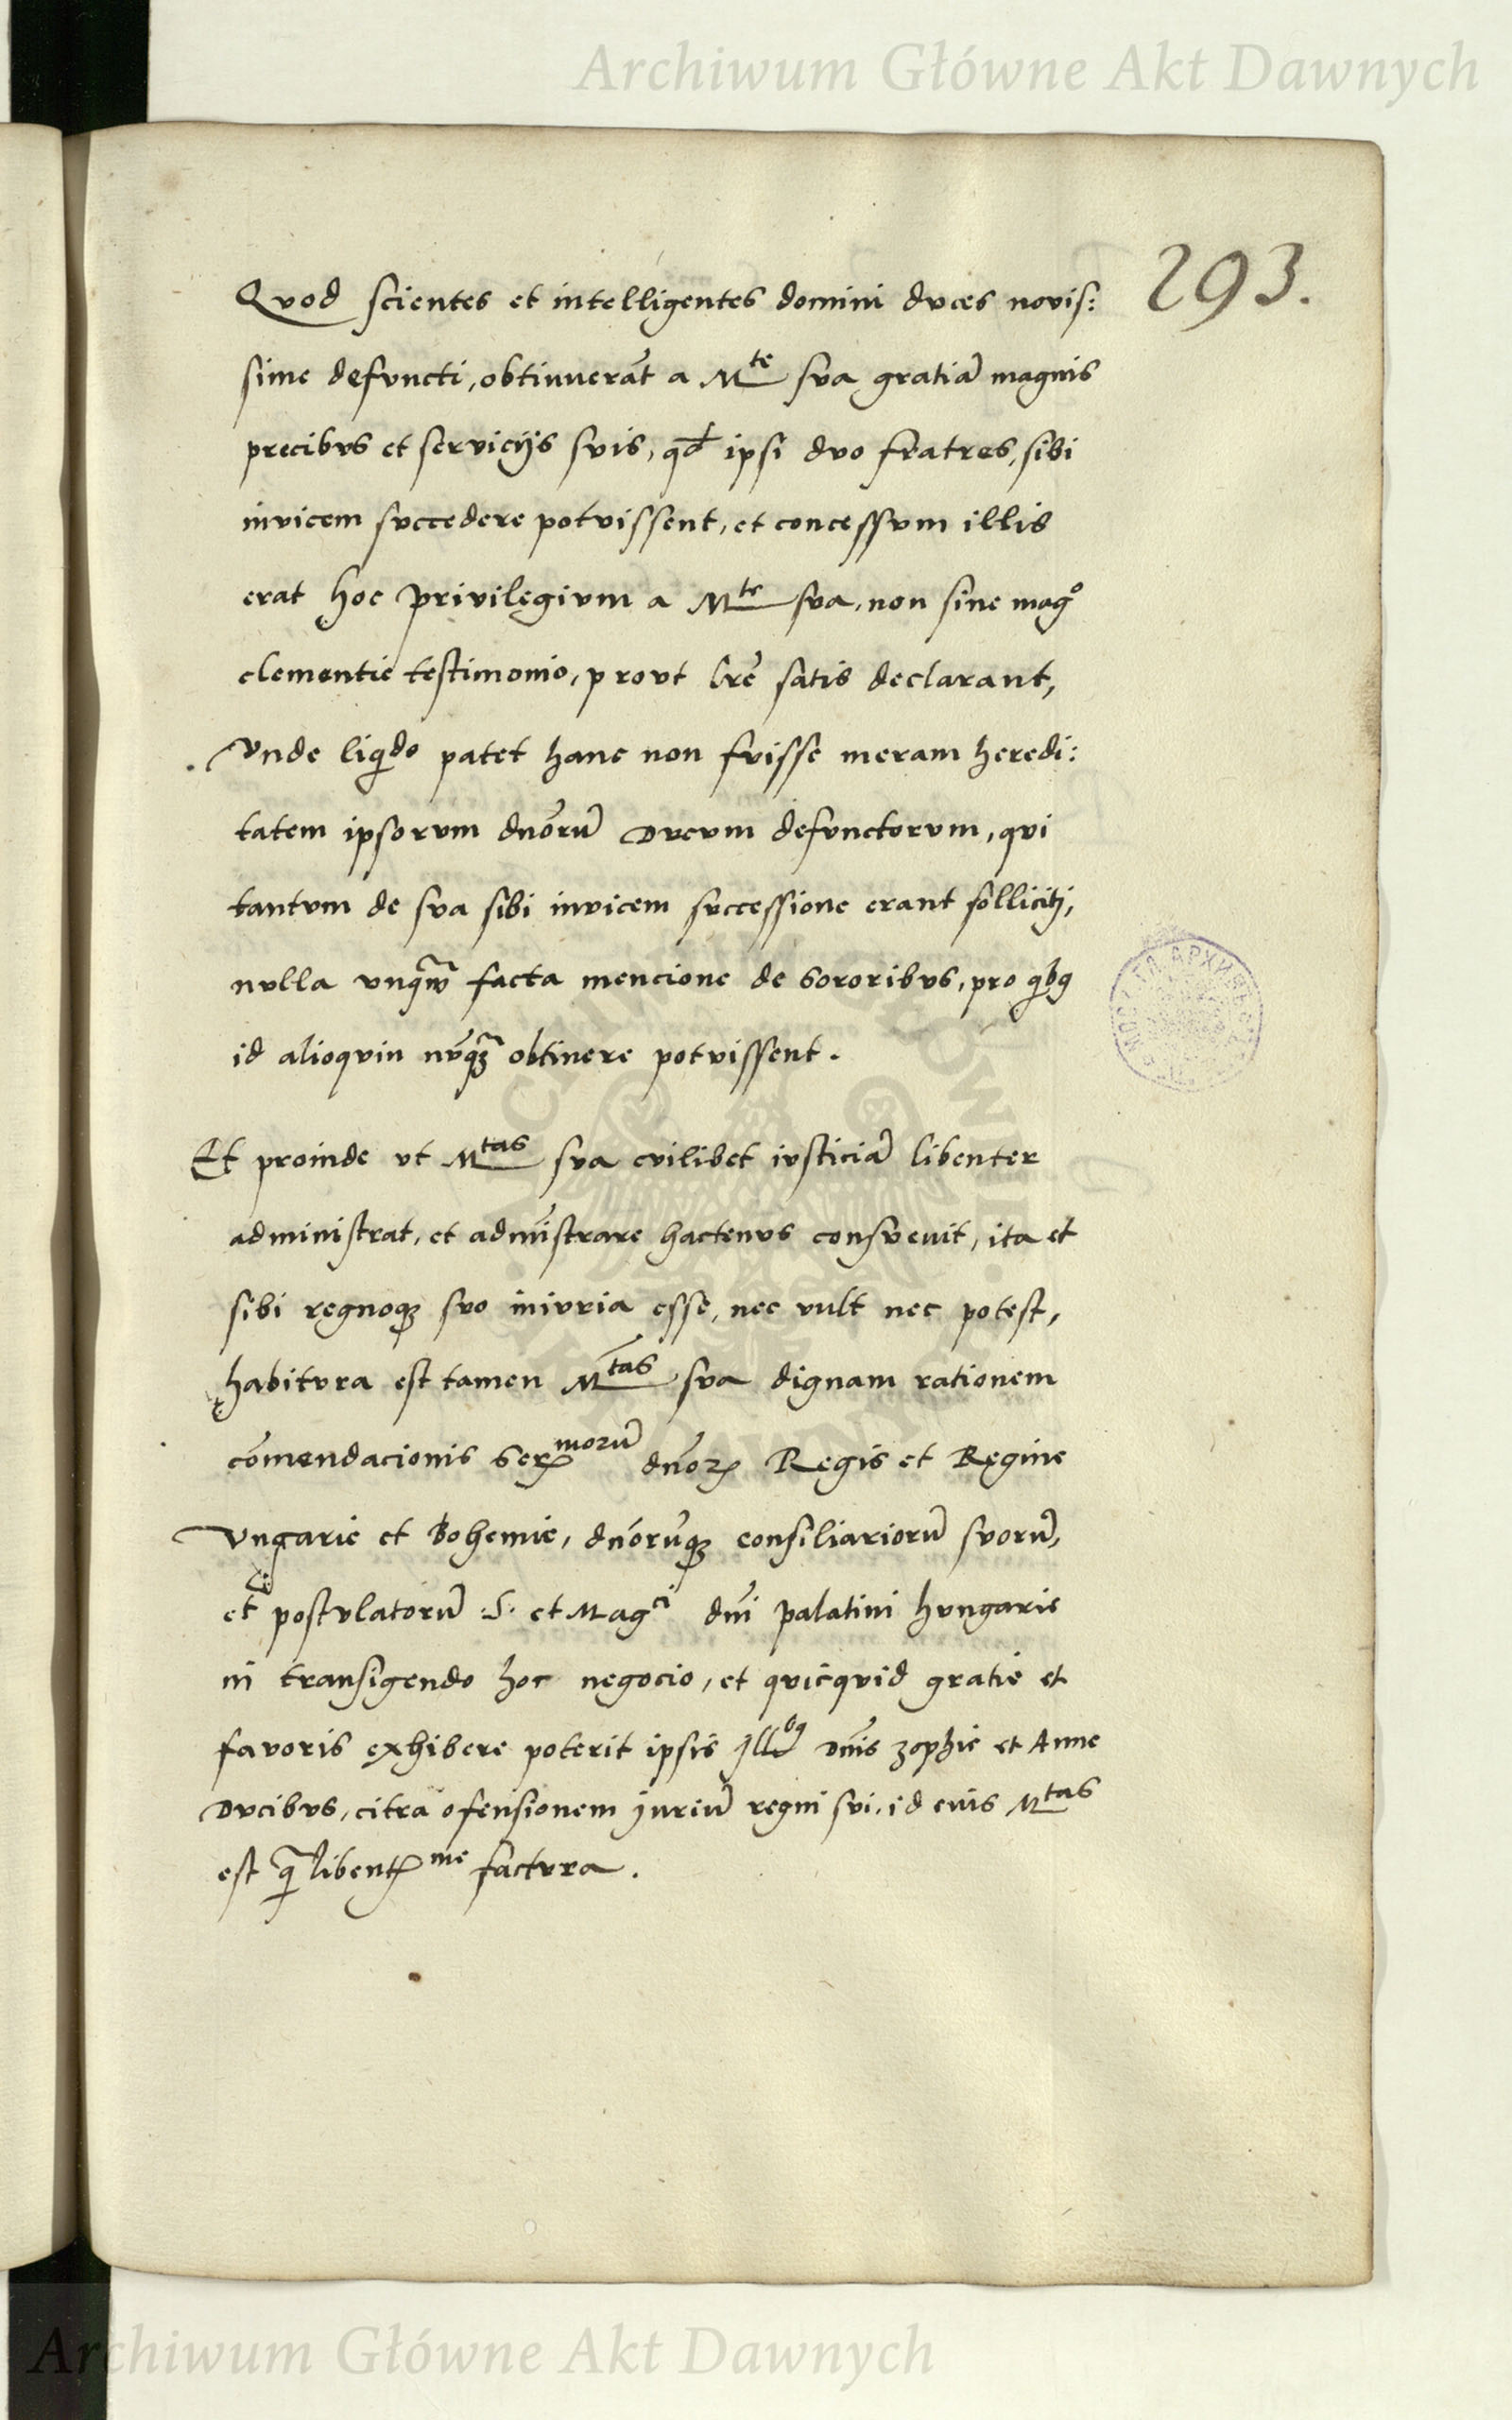 Archiwum Główne Akt Dawnych
293.
Qvod scientes et intelligentes domini dvces novis:
sime defvncti, obtinuerãt a Mte sva gratiã magnis
precibvs et serviciis svis, qđ ipsi dvo fratres, sibi
invicem svccedere potvissent, et concessvm illis
erat hoc privilegivm a Mte sva, non sine magº
clementie testimonio, provt lrẽ satis declarant,
Vnde liqido patet hanc non fvisse meram heredi:
tatem ipsorvm dnõrũ Dvcvm defvnctorvm, qvi
tantvm de sva sibi invicem svccessione erant solliciti,
nvlla vnqvã facta mencione de sororibvs, pro qibꝯ
id alioqvin nv̄qꝫ obtinere potvissent.
Et proinde vt Mtas sva cvilibet ivsticiã libenter
administrat, et admĩstrare hactenvs consvevit, ita et
sibi regnoqꝫ svo inivria esse, nec vult nec potest,
habitvra est tamen Mtas sva dignam rationem
cõmendacionis Serꝫmorũ dnõꝝ Regis et Regine
Vngarie et Bohemie, dnõrũqꝫ consiliariorũ svorũ,
et postvlatorũ .S. et Magci dnĩ palatini hvngarie
in transigendo hoc negocio, et qvicqvid gratie et
favoris exhibere poterit ipsis Illbꝯ Dnĩs Zophie et Anne
Dvcibvs, citra ofensionem jvriũ regni svi, id eius Mtas
est q̃ libentꝫme factvra.
Archiwum Główne Akt Dawnych